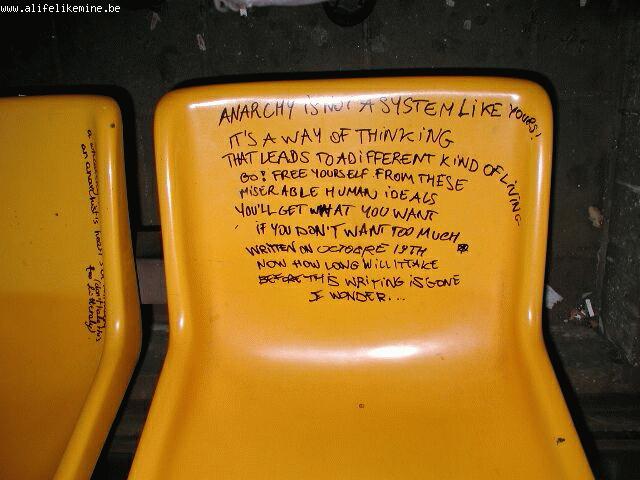 www.alifelikemine.be
ANARCHY IS NOT A SYSTEM LIKE YOURS!
IT'S A WAY OF THINKING
THAT LEADS TO A DIFFERENT KIND OF LIVING
GO! FREE YOURSELF FROM THESE
MISERABLE HUMAN IDEALS
YOU'LL GET WHAT YOU WANT
IF YOU DON'T WANT TOO MUCH
WRITTEN ON OCTOBRE 19TH
NOW HOW LONG WILL IT TAKE
BEFORE THIS WRITING IS GONE
I WONDER...